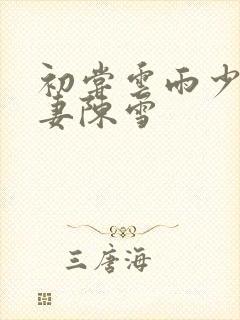 初尝雲雨少
妻陳雪
三唐海